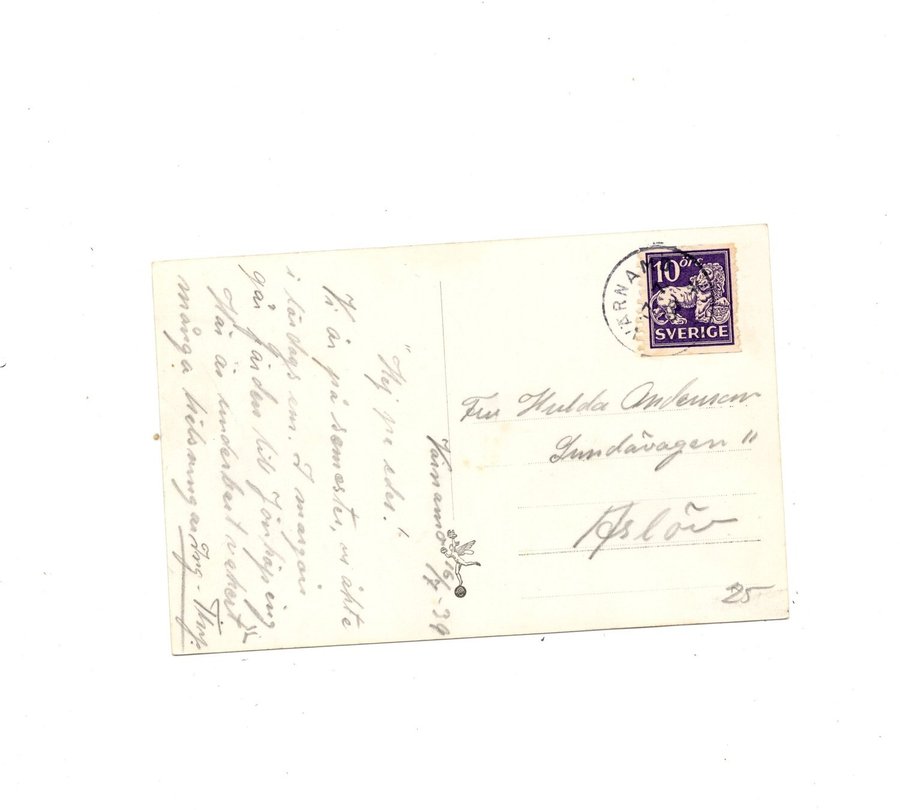 Värnamo 16/7-39
"Hej på eder!
Vi är på semester, vi åkte
i lördags em. I morgon
går färden till Jönköping
Här är underbart vackert
många hälsningar Ing-
VÄRNAMO
10 ÖRE
SVERIGE
Fru Hulda Anderson
Lundavägen 11
Åslöv
25